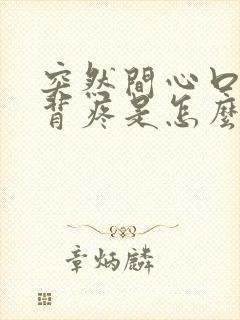 突然間心口
背疼是怎麼
章炳麟